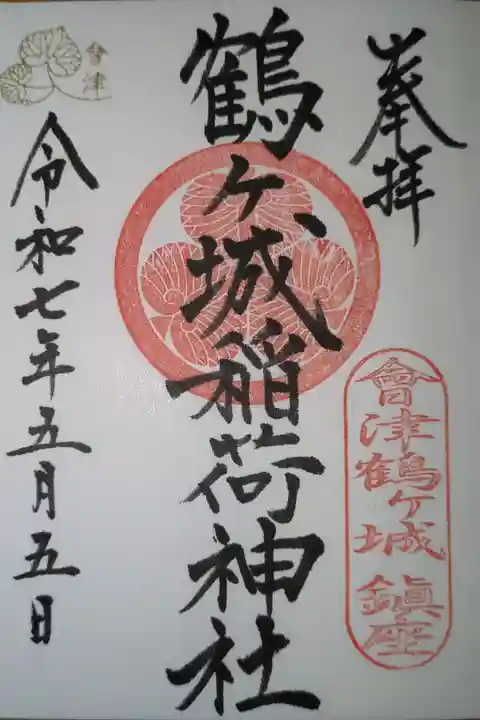 奉拝
會津鶴ヶ城鎮座
鶴ヶ城稲荷神社
令和七年五月五日
會津